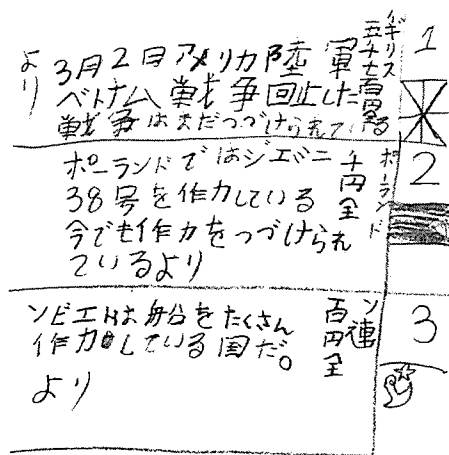 1
イギリス
五千七百円
3月2日アメリカ陸軍
ベトナム戦争回止した
戦争はまだつづけられている
より
2
ポーランド
千円全
ポーランドではジエバニ
38号を作力している
今でも作力をつづけられ
ているより
3
ソ連
百円全
ソビエトは船をたくさん
作力している国だ。
より